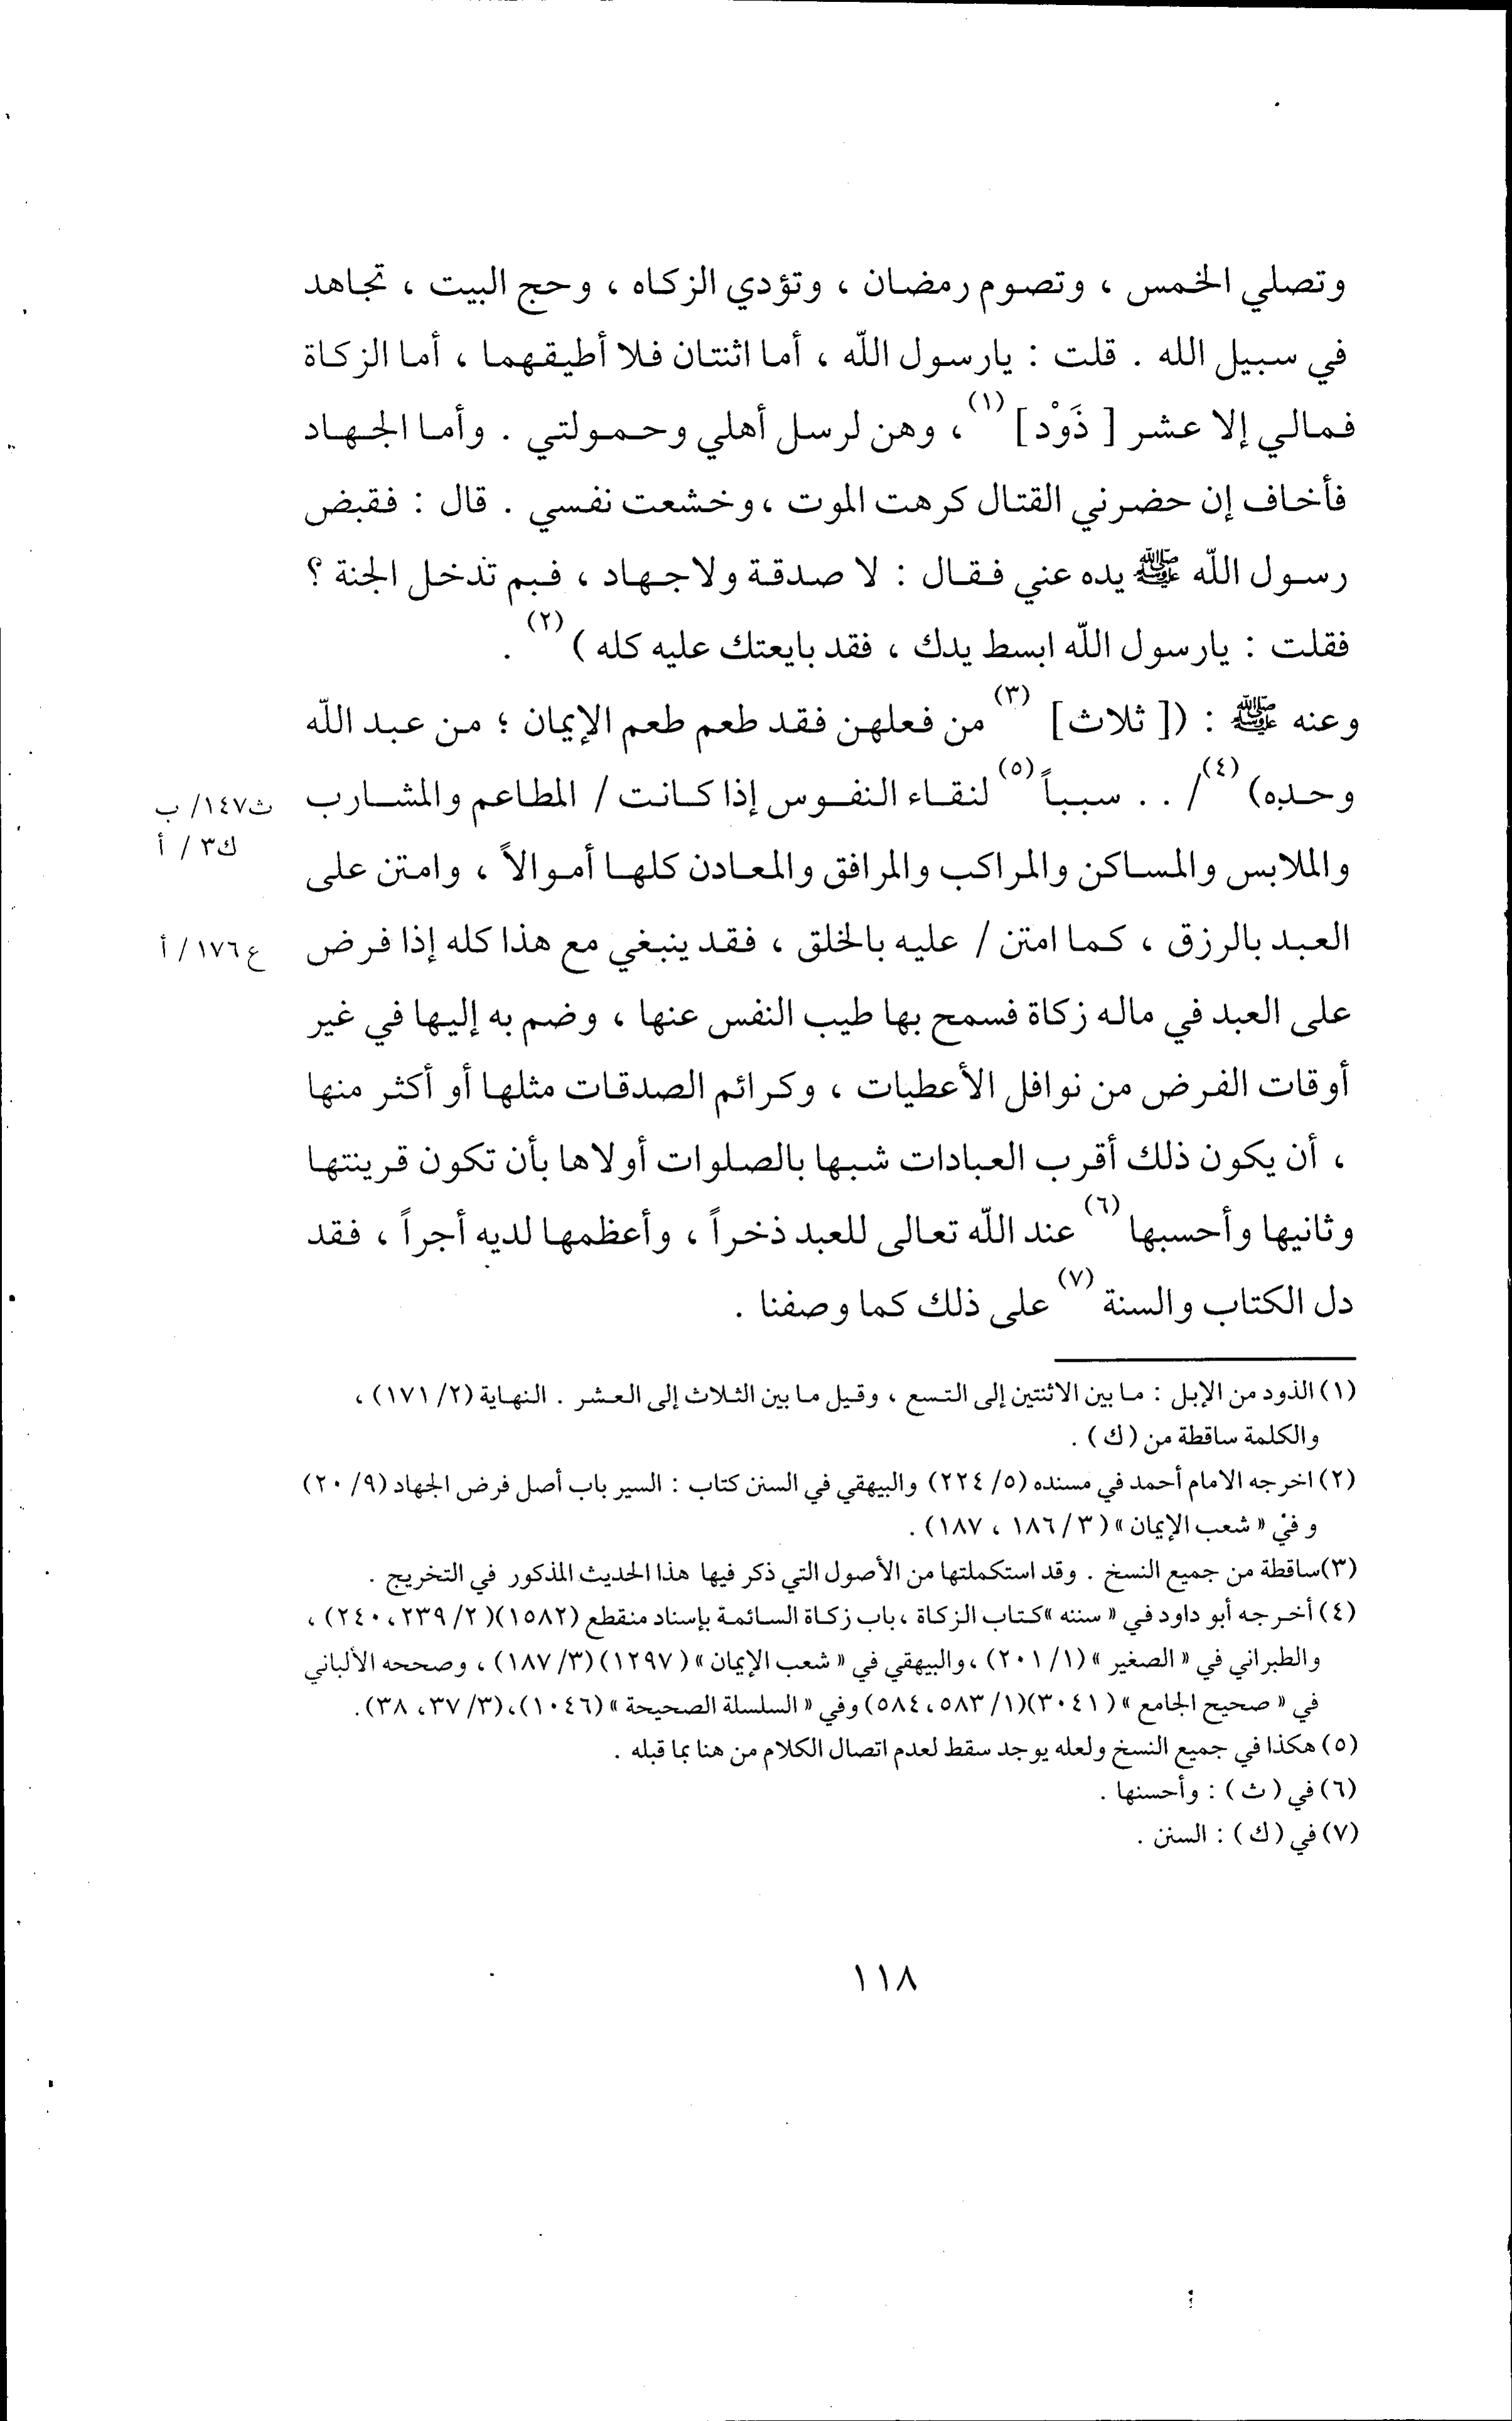 وتصلي الخمس ، وتصوم رمضان ، وتؤدي الزكاه ، وحج البيت ، تجاهد
في سبيل الله . قلت : يارسول اللّه ، أما اثنتان فلا أطيقهما ، أما الزكاة
فمالي إلا عشر [ ذَوْد] (١) ، وهن لرسل أهلي وحمولتي . وأما الجهاد
فأخاف إن حضرني القتال كرهت الموت ، وخشعت نفسي . قال : فقبض
رسول اللّه ﷺ يده عني فقال : لا صدقة ولاجهاد ، فبم تدخل الجنة ؟
فقلت : يارسول اللّه ابسط يدك ، فقد بايعتك عليه كله ) (٢) .
وعنه ﷺ : ([ ثلاث] (٣) من فعلهن فقد طعم طعم الإيمان ؛ من عبد اللّه
وحده) (٤) / . . سبباً (٥) لنقاء النفوس إذا كانت / المطاعم والمشارب
ث١٤٧/ ب
ك٣ / أ
والملابس والمساكن والمراكب والمرافق والمعادن كلها أموالاً ، وامتن على
العبد بالرزق ، كما امتن / عليه بالخلق ، فقد ينبغي مع هذا كله إذا فرض
ع١٧٦ / أ
على العبد في ماله زكاة فسمح بها طيب النفس عنها ، وضم به إليها في غير
أوقات الفرض من نوافل الأعطيات ، وكرائم الصدقات مثلها أو أكثر منها
، أن يكون ذلك أقرب العبادات شبها بالصلوات أولاها بأن تكون قرينتها
وثانيها وأحسبها (٦) عند اللّه تعالى للعبد ذخراً ، وأعظمها لديه أجراً ، فقد
دل الكتاب والسنة (٧) على ذلك كما وصفنا .
(١) الذود من الإبل : ما بين الاثنتين إلى التسع ، وقيل ما بين الثلاث إلى العشر . النهاية (٢/ ١٧١) ،
والكلمة ساقطة من (ك) .
(٢) اخرجه الامام أحمد في مسنده (٥/ ٢٢٤) والبيهقي في السنن كتاب : السير باب أصل فرض الجهاد (٩/ ٢٠)
و في « شعب الإيمان » (٣/ ١٨٦ ، ١٨٧) .
(٣)ساقطة من جميع النسخ . وقد استكملتها من الأصول التي ذكر فيها هذا الحديث المذكور في التخريج .
(٤) أخرجه أبو داود في « سننه »كتاب الزكاة ، باب زكاة السائمة بإسناد منقطع (١٥٨٢)(٢/ ٢٣٩، ٢٤٠) ،
والطبراني في « الصغير » (١/ ٢٠١) ،والبيهقي في « شعب الإيمان » (١٢٩٧)(٣/ ١٨٧) ، وصححه الألباني
في « صحيح الجامع » (٣٠٤١)(١/ ٥٨٣، ٥٨٤) وفي « السلسلة الصحيحة » (١٠٤٦)،(٣/ ٣٧، ٣٨).
(٥) هكذا في جميع النسخ ولعله يوجد سقط لعدم اتصال الكلام من هنا بما قبله .
(٦) في (ث) : وأحسنها .
(٧) في (ك) : السنن .
١١٨